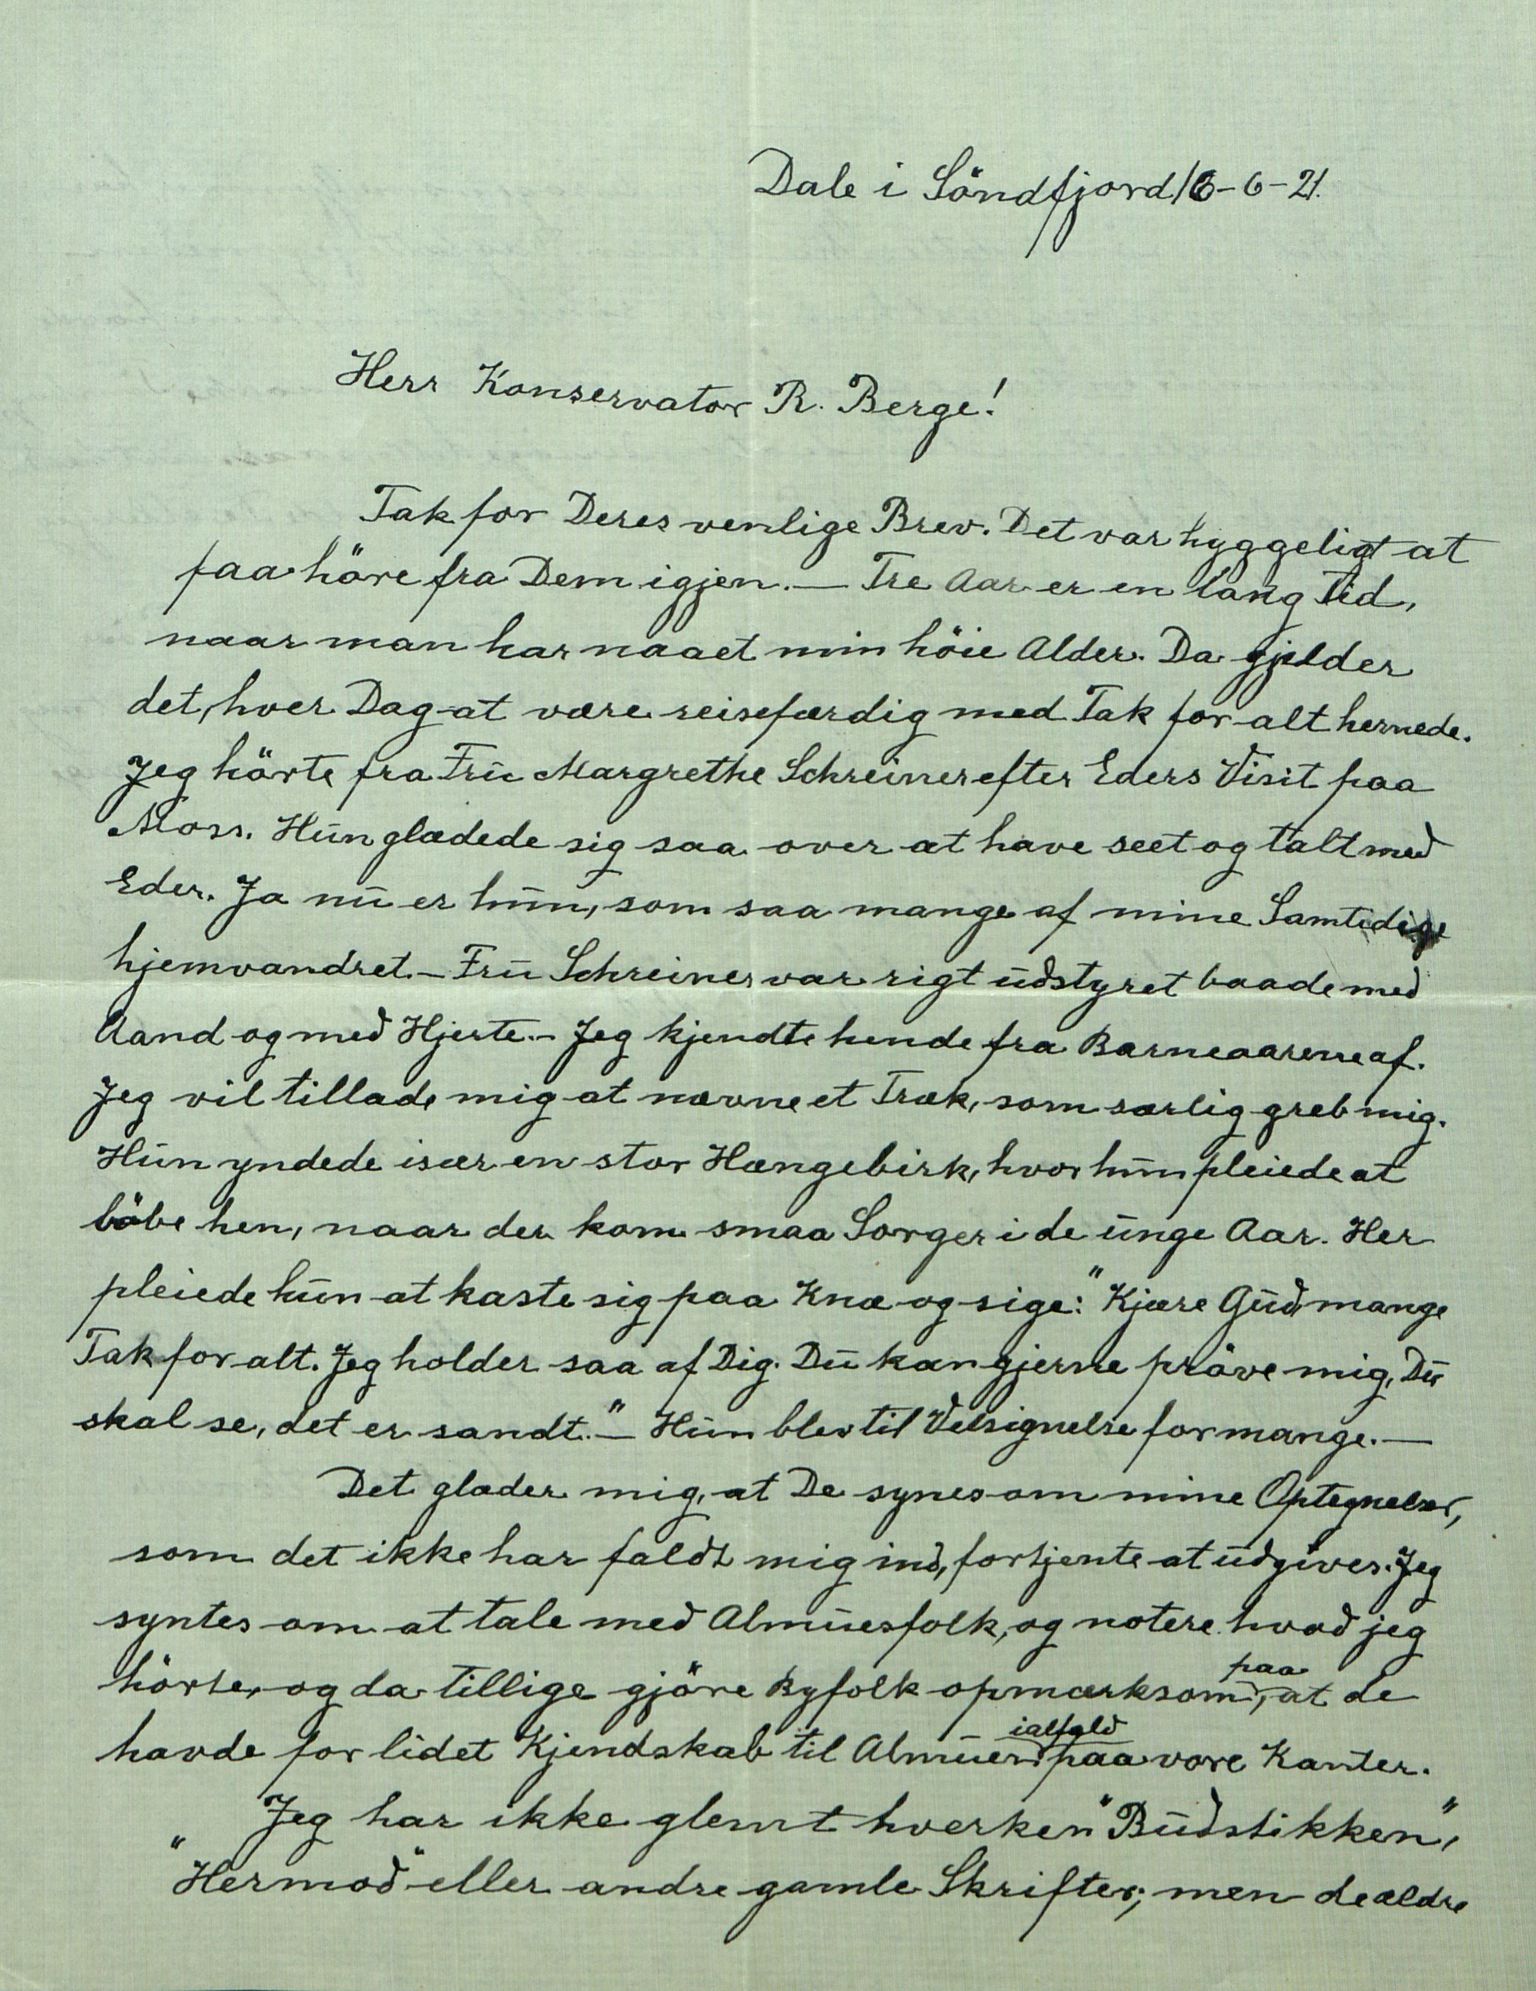 Dale i Söndfjord 16-6-21.
Herr Konservator R. Berge!
Tak for Deres venlige Brev. Det var hyggeligt at
faa höre fra Dem igjen. — Tre Aar er en lang Tid,
naar man har naaet min höie Alder. Da gjelder
det, hver Dag at være reisefærdig med Tak for alt hernede.
Jeg hörte fra Frü Margrethe Schreiner efter Eders Visit paa
Moss. Hün glædede sig saa over at have seet og talt med
Eder. Ja nü er hün, som saa mange af mine Samtidige
hjemvandret. – Frü Schreiner var rigt üdstyret baade med
Aand og med Hjerte. – Jeg kjendte hende fra Barneaarene af.
Jeg vil tillade mig at nævne et Træk, som særlig greb mig.
Hün yndede især en stor Hængebirk, hvor hün pleiede at
löbe hen, naar der kom smaa Sorger i de ünge Aar. Her
pleiede hün at kaste sig paa Knæ og sige: "Kjære Güd, mange
Tak for alt. Jeg holder saa af Dig. Dü kan gjerne pröve mig, Dü
skal se, det er sandt." – Hün blev til Velsignelse for mange. —
Det glæder mig, at De synes om mine Optegnelser,
som det ikke har faldt mig ind, fortjente at üdgives. Jeg
syntes om at tale med Almüesfolk, og notere hvad jeg
hörte, og da tillige gjöre Byfolk opmærksom paa, at de
havde for lidet Kjendskab til Almüen ialfald paa vore Kanter.
Jeg har ikke glemt hverken "Büdstikken",
"Hermod" eller andre gamle Skrifter; men de ældre